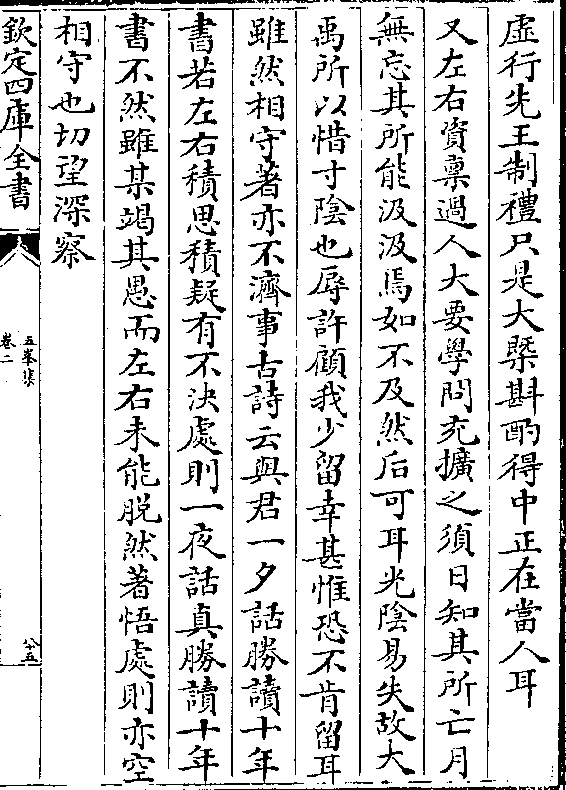 虛行先王制禮只是大槩斟酌得中正在當人耳
又左右資稟過人大要學問充擴之須日知其所亡月
無忘其所能汲汲焉如不及然后可耳光陰易失故大
禹所以惜寸陰也辱許顧我少留幸甚惟恐不肯留耳
雖然相守著亦不濟事古詩云與君一夕話勝讀十年
書若左右積思積疑有不決處則一夜話真勝讀十年
書不然雖某竭其愚而左右未能脱然著悟處則亦空
相守也切望深察
欽定四庫全書
五峯集
卷二
六十五